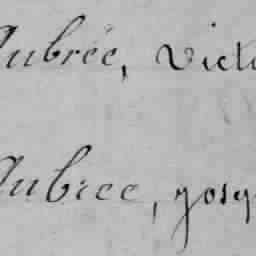 Aubrée, Victo
Aubree, Josep